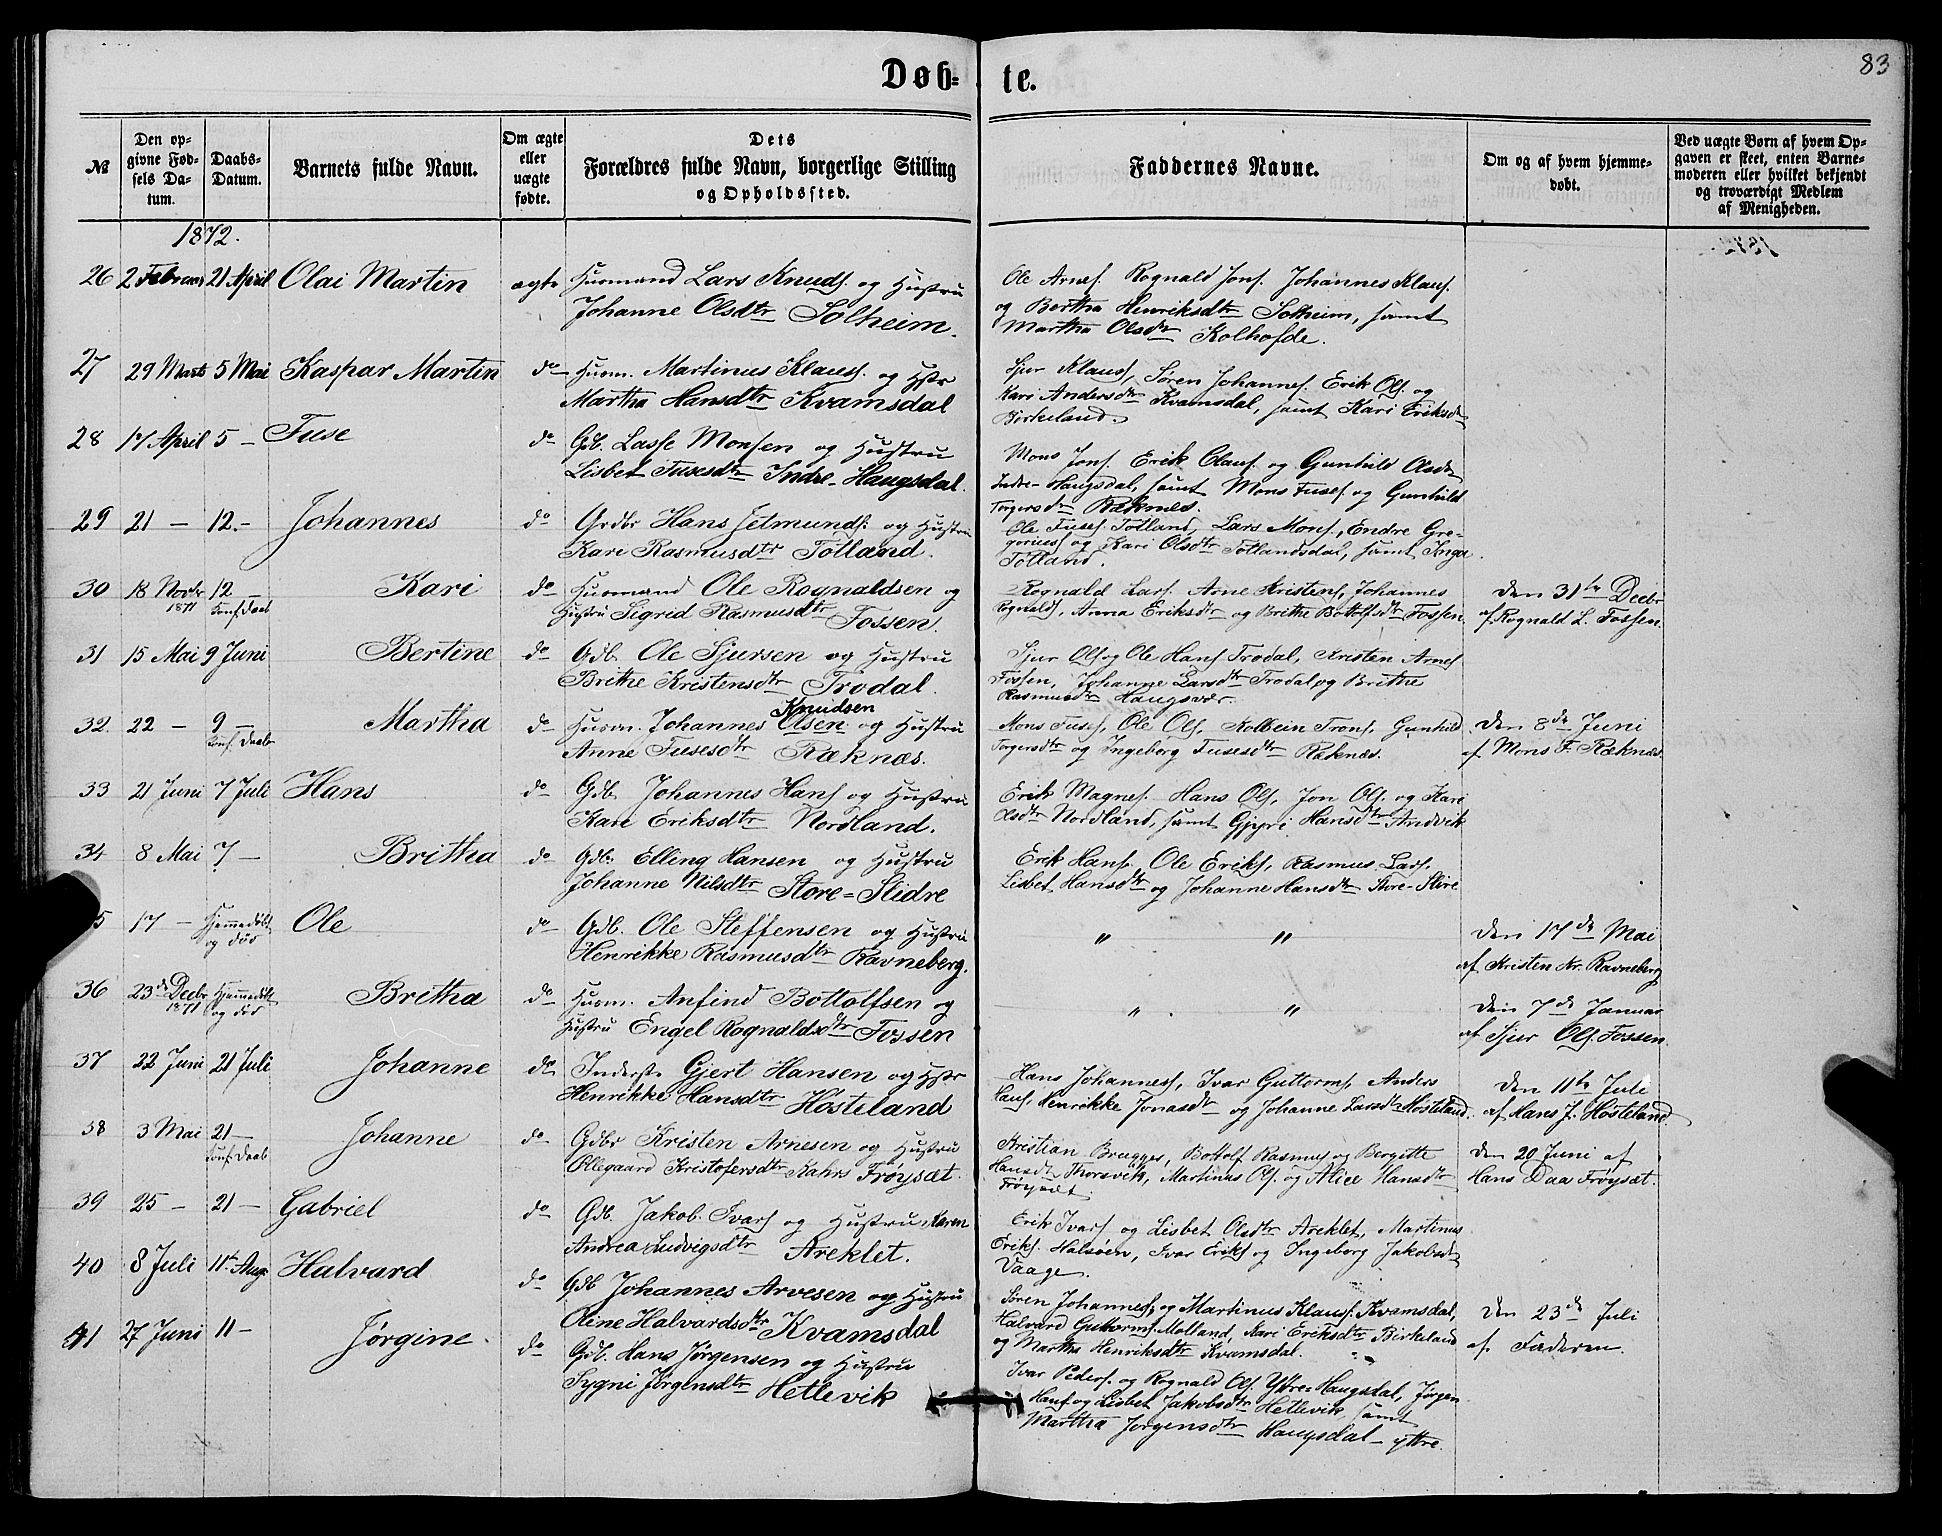 83
Døb- te.
№
Den op-
givne Fød-
sels Da-
tum.
Daabs-
Datum.
Barnets fulde Navn.
Om ægte
eller
uægte
fødte.
Dets
Forældres fulde Navn, borgerlige Stilling
og Opholdssted.
Faddernes Navne.
Om og af hvem hjemme-
døbt.
Ved uægte Børn af hvem Op-
gaven er skeet, enten Barne-
moderen eller hvilket bekjendt
og troværdigt Medlem
af Menigheden.
1872.
26 2 Februar 21 April Olai Martin ægte Huusmand Lars Knuds. og Hustru
Johanne Olsdtr Solheim.
Ole Arnes. Rognald Jons. Johannes Klaus.
og Bertha Henriksdtr Solheim, samt
Martha Olsdtr Kolhofde.
27 29 Marts 5 Mai Kaspar Martin do Huusm. Martinus Klaus. og Hstr
Martha Hansdtr Kvamsdal
Sjur Klaus, Søren Johannes. Erik Ols. og
Kari Andersdtr Kvamsdal, samt Kari Eriksdtr
Birkeland.
28 17 April 5 — Fuse do Gdb. Lasse Monsen og Hustru
Lisbet Fusesdtr Indre-Haugsdal.
Mons Jons. Erik Olaus. og Gunhild Olsdtr
Indre-Haugsdal, samt Mons Fuses. og Gunhild
Torgersdtr Ræknes.
29 21 — 12.- Johannes do Grdbr Hans Jetmunds. og Hustru
Kari Rasmusdtr Totland.
Ole Fuses. Totland, Lars Mons., Endre Gre-
goriuss. og Kari Olsdtr Totlandsdal, samt Inga
Totland.
30 18 Novbr 12 — Kari do Huusmand Ole Rognaldsen og
1871 Conf. Daab
Hustru Sigrid Rasmusdtr Fossen.
Rognald Lars. Arne Kristens, Johannes
Rognalds, Anna Eriksdtr og Brithe Bottolfsdtr Fossen.
Den 31te Decbr
af Rognald L. Fossen.
31 15 Mai 9 Juni Bertine do Gdb. Ole Sjursen og Hustru
Brithe Kristensdtr Trodal.
Sjur Ols. og Ole Hans. Trodal, Kristen Arnes
Fossen, Johanne Larsdtr Trodal, og Brithe
Rasmusdtr Haugsvær.
32. 22 — 9 — Martha do Huusm. Johannes Olsen og Hustru
Knudsen
Conf. Daab
Anne Fusesdtr Ræknæs.
Mons Fuses, Ole Ols, Kolbein Trons, Gunhild
Torgersdtr og Ingeborg Fusesdtr Ræknæs.
Den 8de Juni
af Mons F. Ræknæs
33 21 Juni 7 Juli Hans do Gdb. Johannes Hans og Hustru
Kari Eriksdtr Nordland.
Erik Magnes. Hans Ols, Jon Ols. og Kari
Olsdtr Nordland, samt Gjyri Hansdtr Andvik
34 8 Mai 7 — Britha do Gdb. Elling Hansen og Hustru
Johanne Nilsdtr Store-Slidre
Erik Hans, Ole Eriks, Rasmus Lars.
Lisbet Hansdtr og Johanne Hansdtr Store-Slire
5 17 — Hjemmedøbt Ole do Gdb. Ole Steffensen og Hustru
og død
Henrikke Rasmusdtr Ravneberg.
" "
Den 17de Mai
af Kristen Kr. Ravneberg
36 23de Decbr Hjemmedøbt Britha do Huusm. Anfind Bottolfsen og
1871 og død
Hustru Engel Rognaldsdtr Fossen
" "
Den 7de Januar
af Sjur Ols. Fossen.
37 22 Juni 21 Juli Johanne do Inderste Gjert Hansen og Hstr
Henrikke Hansdtr Hosteland
Hans Johanness, Ivar Guttorms, Anders
Hans, Henrikke Jonasdtr og Johanne Larsdtr Hosteland.
Den 11te Juli
af Hans J. Hosteland.
38 3 Mai 21 — Johanne do Gdbr Kristen Arnesen og Hustru
Conf. Daab
Ollegaard Kristofersdtr Kahrs Frøysæt.
Kristian Brugges, Bottolf Rasmus og Bergitte
Hansdtr Thorsvik, Martinus Ols. og Alice Hansdtr
Frøysæt.
Den 20 Juni af
Hans Daa Frøysæt.
39 25 — 21 — Gabriel do Gdb. Jakob Ivars og Hustru Karen
Andrea Ludvigsdtr Areklet.
Erik Ivars og Lisbet Olsdtr Areklet, Martinus
Eriks. Halsøen, Ivar Eriks og Ingeborg Jakobsdtr
Vaage.
40 8 Juli 11te Aug. Halvard do Gdb Johannes Arvesen og Hustru
Oline Halvardsdtr Kvamsdal
Søren Johannes, og Martinus Klaus. Kvamsdal,
Halvard Guttorms. Molland, Kari Eriksdtr Birkeland
og Martha Henriksdtr Kvamsdal.
Den 23de Juli
af Faderen.
41 27 Juni 11 — Jørgine. do Gdb. Hans Jørgensen og Hustru
Sygni Jørgensdtr Hetlevik
Ivar Peders. og Rognald Ols. Yttre-Haugsdal, Jørgen
Hans og Lisbet Jakobsdtr Hetlevik, samt
Martha Jørgensdtr Haugsdal-yttre.